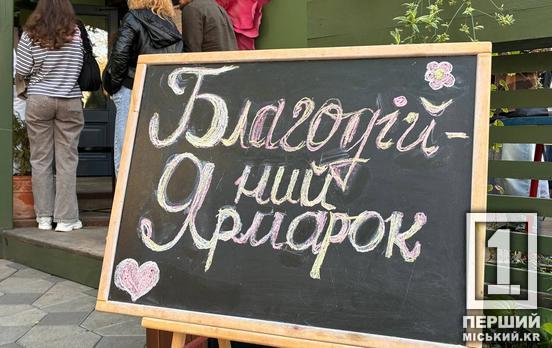 Благодій-
ний
Ярмарок
1
ПЕРШИЙ
МІСЬКИЙ.KR